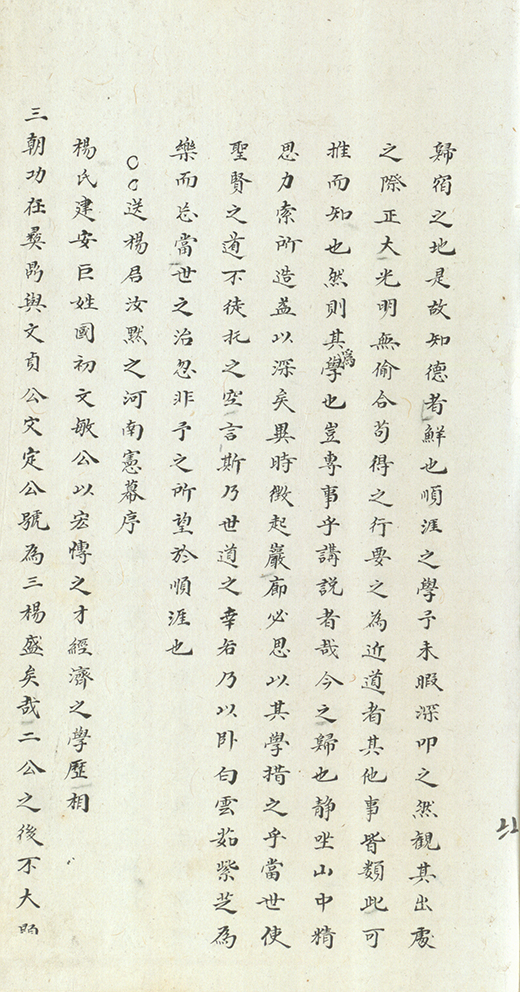 歸宿之地是故知德者鮮也順涯之學予未暇深叩之然觀其出處
之際正大光明無偷合茍得之行要之為近道者其他事皆類此可
推而知也然則其為學也豈專事乎講説者哉今之歸也静坐山中精
思力索所造益以深矣異時徴起巖廊必思以其學措之乎當世使
聖賢之道不徒托之空言斯乃世道之幸若乃以卧白雲茹紫芝為
樂而忘當世之治忽非予之所望於順涯也
○○送楊君汝默之河南憲幕序
楊氏建安巨姓國初文敏公以宏博之才經濟之學歷相
三朝功在彛鼎與文貞公文定公號為三楊盛矣哉二公之後不大顯